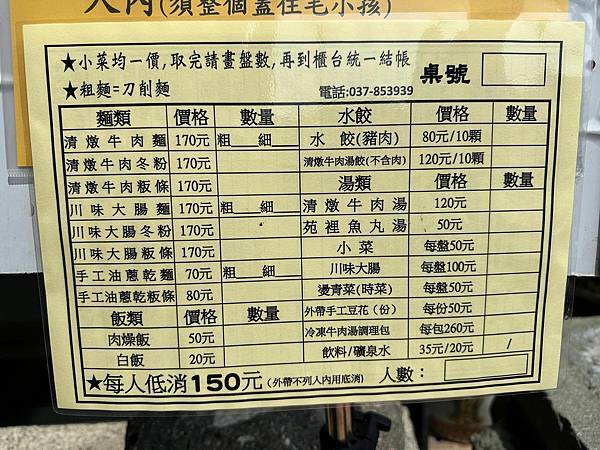 大內(須整個蓋住毛小孩)
★小菜均一價,取完請畫盤數,再到櫃台統一結帳
★粗麵=刀削麵
電話:037-853939
桌號
麵類 價格 數量 水餃 價格 數量
清燉牛肉麵 170元 粗__細__ 水餃(豬肉) 80元/10顆
清燉牛肉冬粉 170元 清燉牛肉湯餃(不含肉) 120元/10顆
清燉牛肉粄條 170元 湯類 價格 數量
川味大腸麵 170元 粗__細__ 清燉牛肉湯 120元
川味大腸冬粉 170元 苑裡魚丸湯 50元
川味大腸粄條 170元 小菜 每盤50元
手工油蔥乾麵 70元 粗__細__ 川味大腸 每盤100元
手工油蔥乾粄條 80元 燙青菜(時菜) 每盤50元
飯類 價格 數量 外帶手工豆花(份) 每份50元
肉燥飯 50元 冷凍牛肉湯調理包 每包260元
白飯 20元 飲料/礦泉水 35元/20元 /
★每人低消150元(外帶不列入內用底消) 人數: